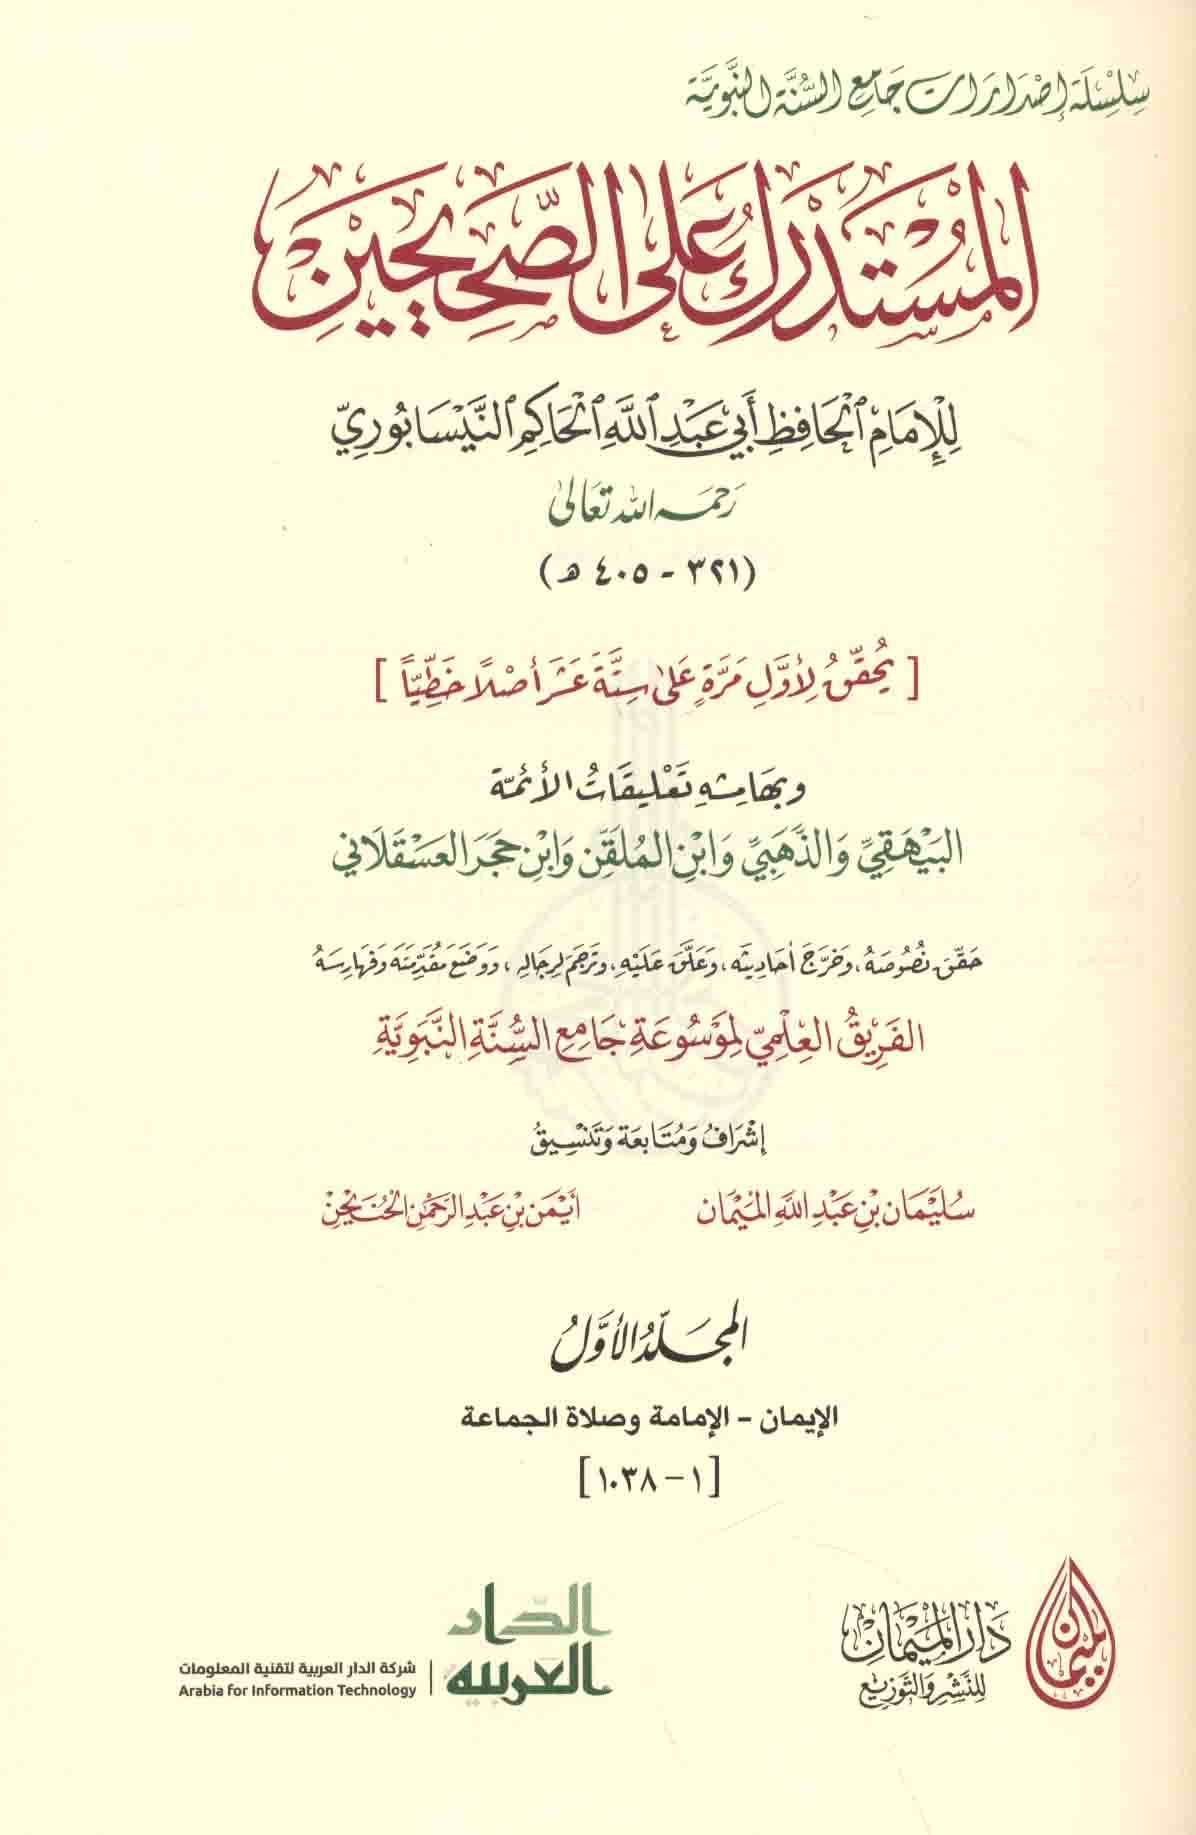 سِلْسِلَة إصْدَارَات جَامِع السُّنَّة النَّبَوِيَّة
المُسْتَدْرَكُ عَلَى الصَّحِيحَيْنِ
لِلْإِمَامِ الْحَافِظِ أَبِي عَبْدِ اللَّهِ الْحَاكِمِ النَّيْسَابُورِيّ
رَحِمَهُ اللهُ تَعَالَى
(٣٢١ - ٤٠٥ هـ)
[ يُحَقَّقُ لِأَوَّلِ مَرَّةٍ عَلَى سِتَّةَ عَشَرَ أَصْلًا خَطِّيّاً ]
وبِهَامِشِهِ تَعْلِيقَاتُ الأَئِمَّة
البَيْهَقِيِّ وَالذَّهَبِيِّ وَابْنِ المُلَقِّن وَابْنِ حَجَر العَسْقَلَانِي
حَقَّقَ نُصُوصَهُ، وَخَرَّجَ أَحَادِيثَه، وَعَلَّقَ عَلَيْهِ، وَتَرْجَمَ لِرِجَالِهِ، وَوَضَعَ مُقَدِّمَتَه وَفَهَارِسَهُ
الفَرِيقُ العِلْمِيّ لِمَوْسُوعَةِ جَامِعِ السُّنَّةِ النَّبَوِيَّةِ
إشْرَافُ وَمُتَابَعَة وَتَنْسِيقُ
سُلَيْمَان بْنِ عَبْدِ اللَّهِ المَيْمَان أَيْمَن بْنِ عَبْدِ الرَّحْمٰنِ الحُنَيْحِنِ
المجَلَّدُ الأَوَّلُ
الإيمان - الإمامة وصلاة الجماعة
[١ - ١٠٣٨]
الميمان
دَارُ المَيْمَانِ
لِلنَّشْرِ وَالتَّوْزِيع
الدّار
العَربية
شركة الدار العربية لتقنية المعلومات
Arabia for Information Technology